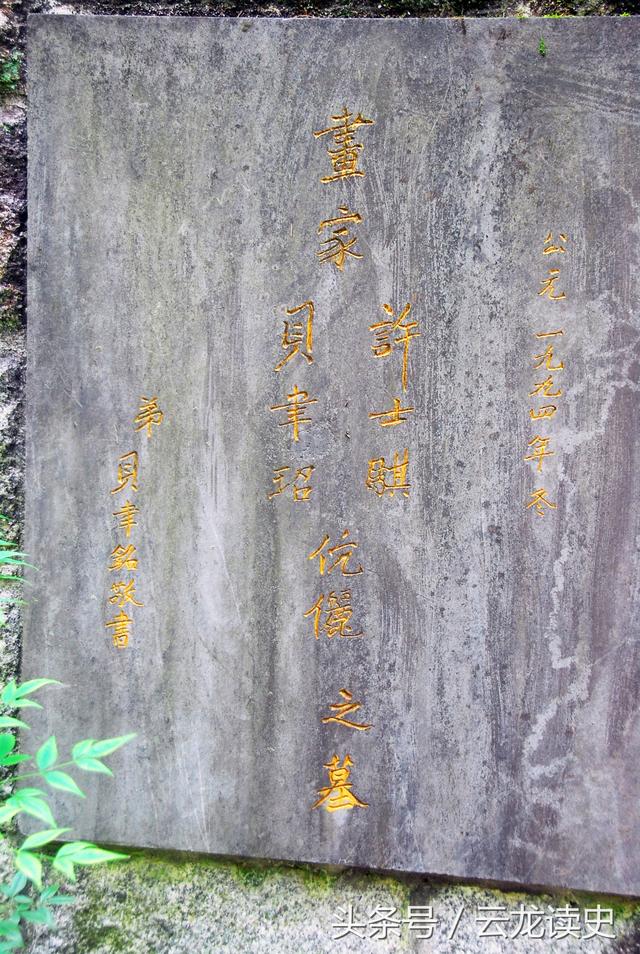 公元一九九四年冬
畫家
許士騏
貝聿玿
伉儷
之墓
弟 貝聿銘敬書
头条号/云龙读史